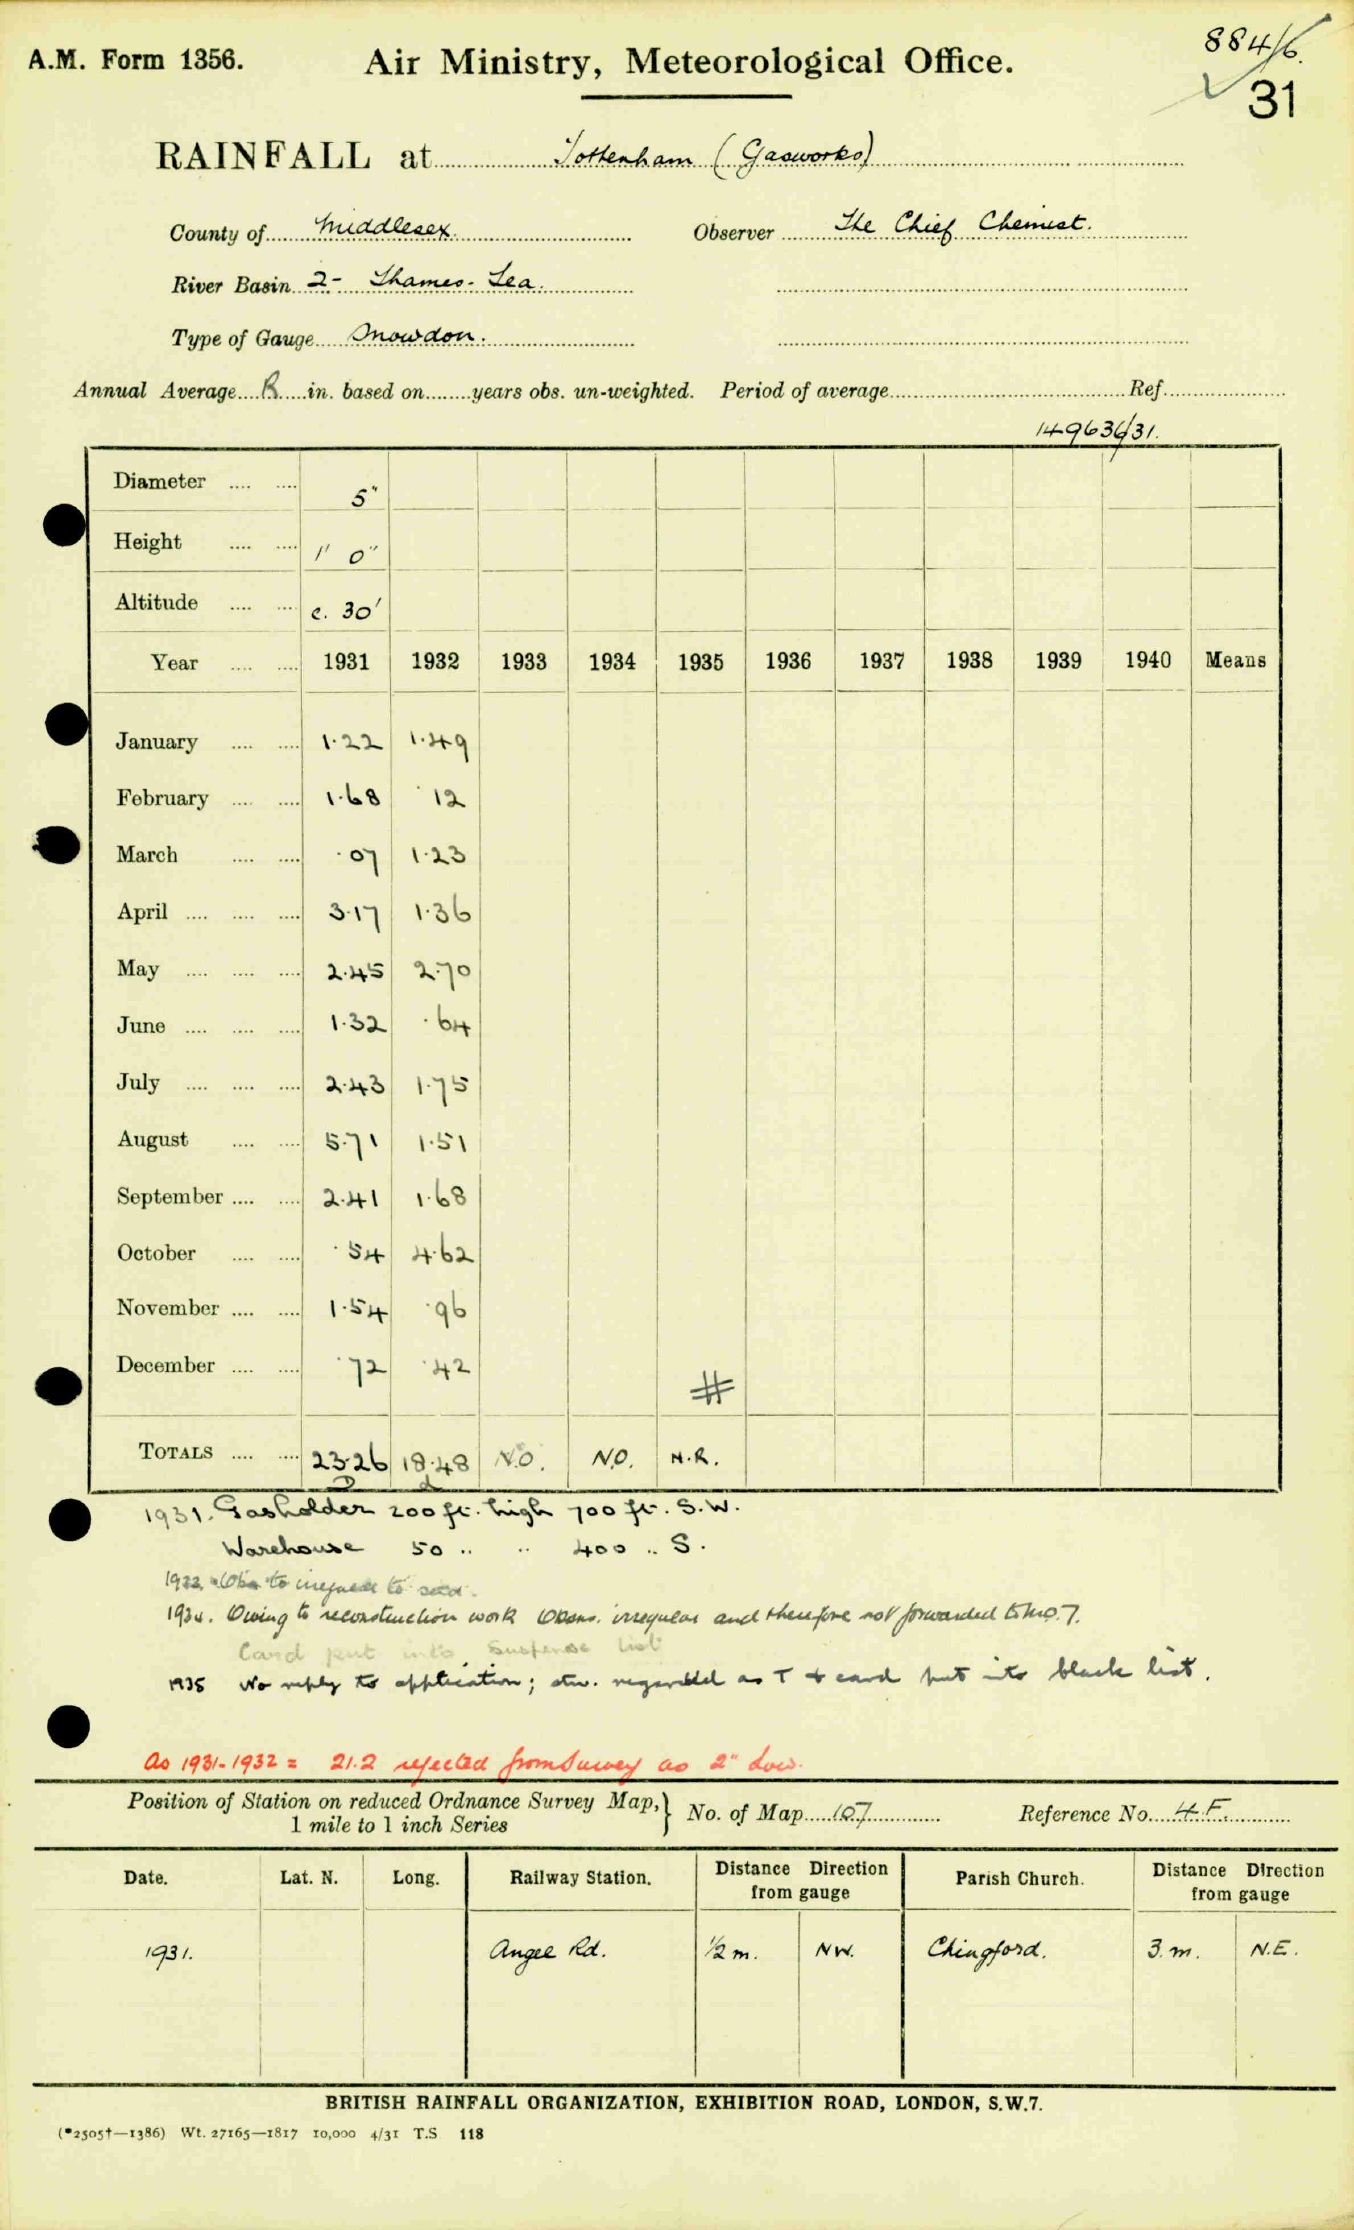 A.M. Form 1356.
Air Ministry, Meteorological Office.
884/6.
31
RAINFALL at Tottenham (Gasworks)
County of Middlesex. Observer The Chief Chemist.
River Basin 2- Thames-Lea.
Type of Gauge Snowdon.
Annual Average R in. based on years obs. un-weighted. Period of average Ref.
149636/31.
Diameter 5"
Height 1' 0"
Altitude c. 30'
Year 1931 1932 1933 1934 1935 1936 1937 1938 1939 1940 Means
January 1.22 1.49
February 1.68 .12
March .07 1.23
April 3.17 1.36
May 2.45 2.70
June 1.32 .64
July 2.43 1.75
August 5.71 1.51
September 2.41 1.68
October .54 4.62
November 1.54 .96
December .72 .42
#
TOTALS 23.26 18.48 N.O. N.O. N.R.
1931. Gasholder 200 ft. high 700 ft. S.W.
Warehouse 50 " " 400 " S.
to irregular to
1934. Owing to reconstruction work Obsns. irregular and therefore not forwarded to M.O.7.
Card put into Suspense list
1935 No reply to application; stn. regarded as T & card put into black list.
As 1931-1932 = 21.2 rejected from Survey as 2" low.
Position of Station on reduced Ordnance Survey Map, } No. of Map 107 Reference No. 4.F.
1 mile to 1 inch Series
Date. Lat. N. Long. Railway Station. Distance Direction from gauge Parish Church. Distance Direction from gauge
1931. Angel Rd. ½ m. NW. Chingford. 3. m. N.E.
BRITISH RAINFALL ORGANIZATION, EXHIBITION ROAD, LONDON, S.W.7.
(*2505†—1386) Wt. 27165—1817 10,000 4/31 T.S 118